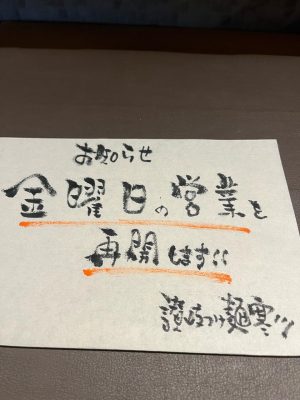 お知らせ
金曜日の営業を
再開します!!
讃岐つけ麺寒川